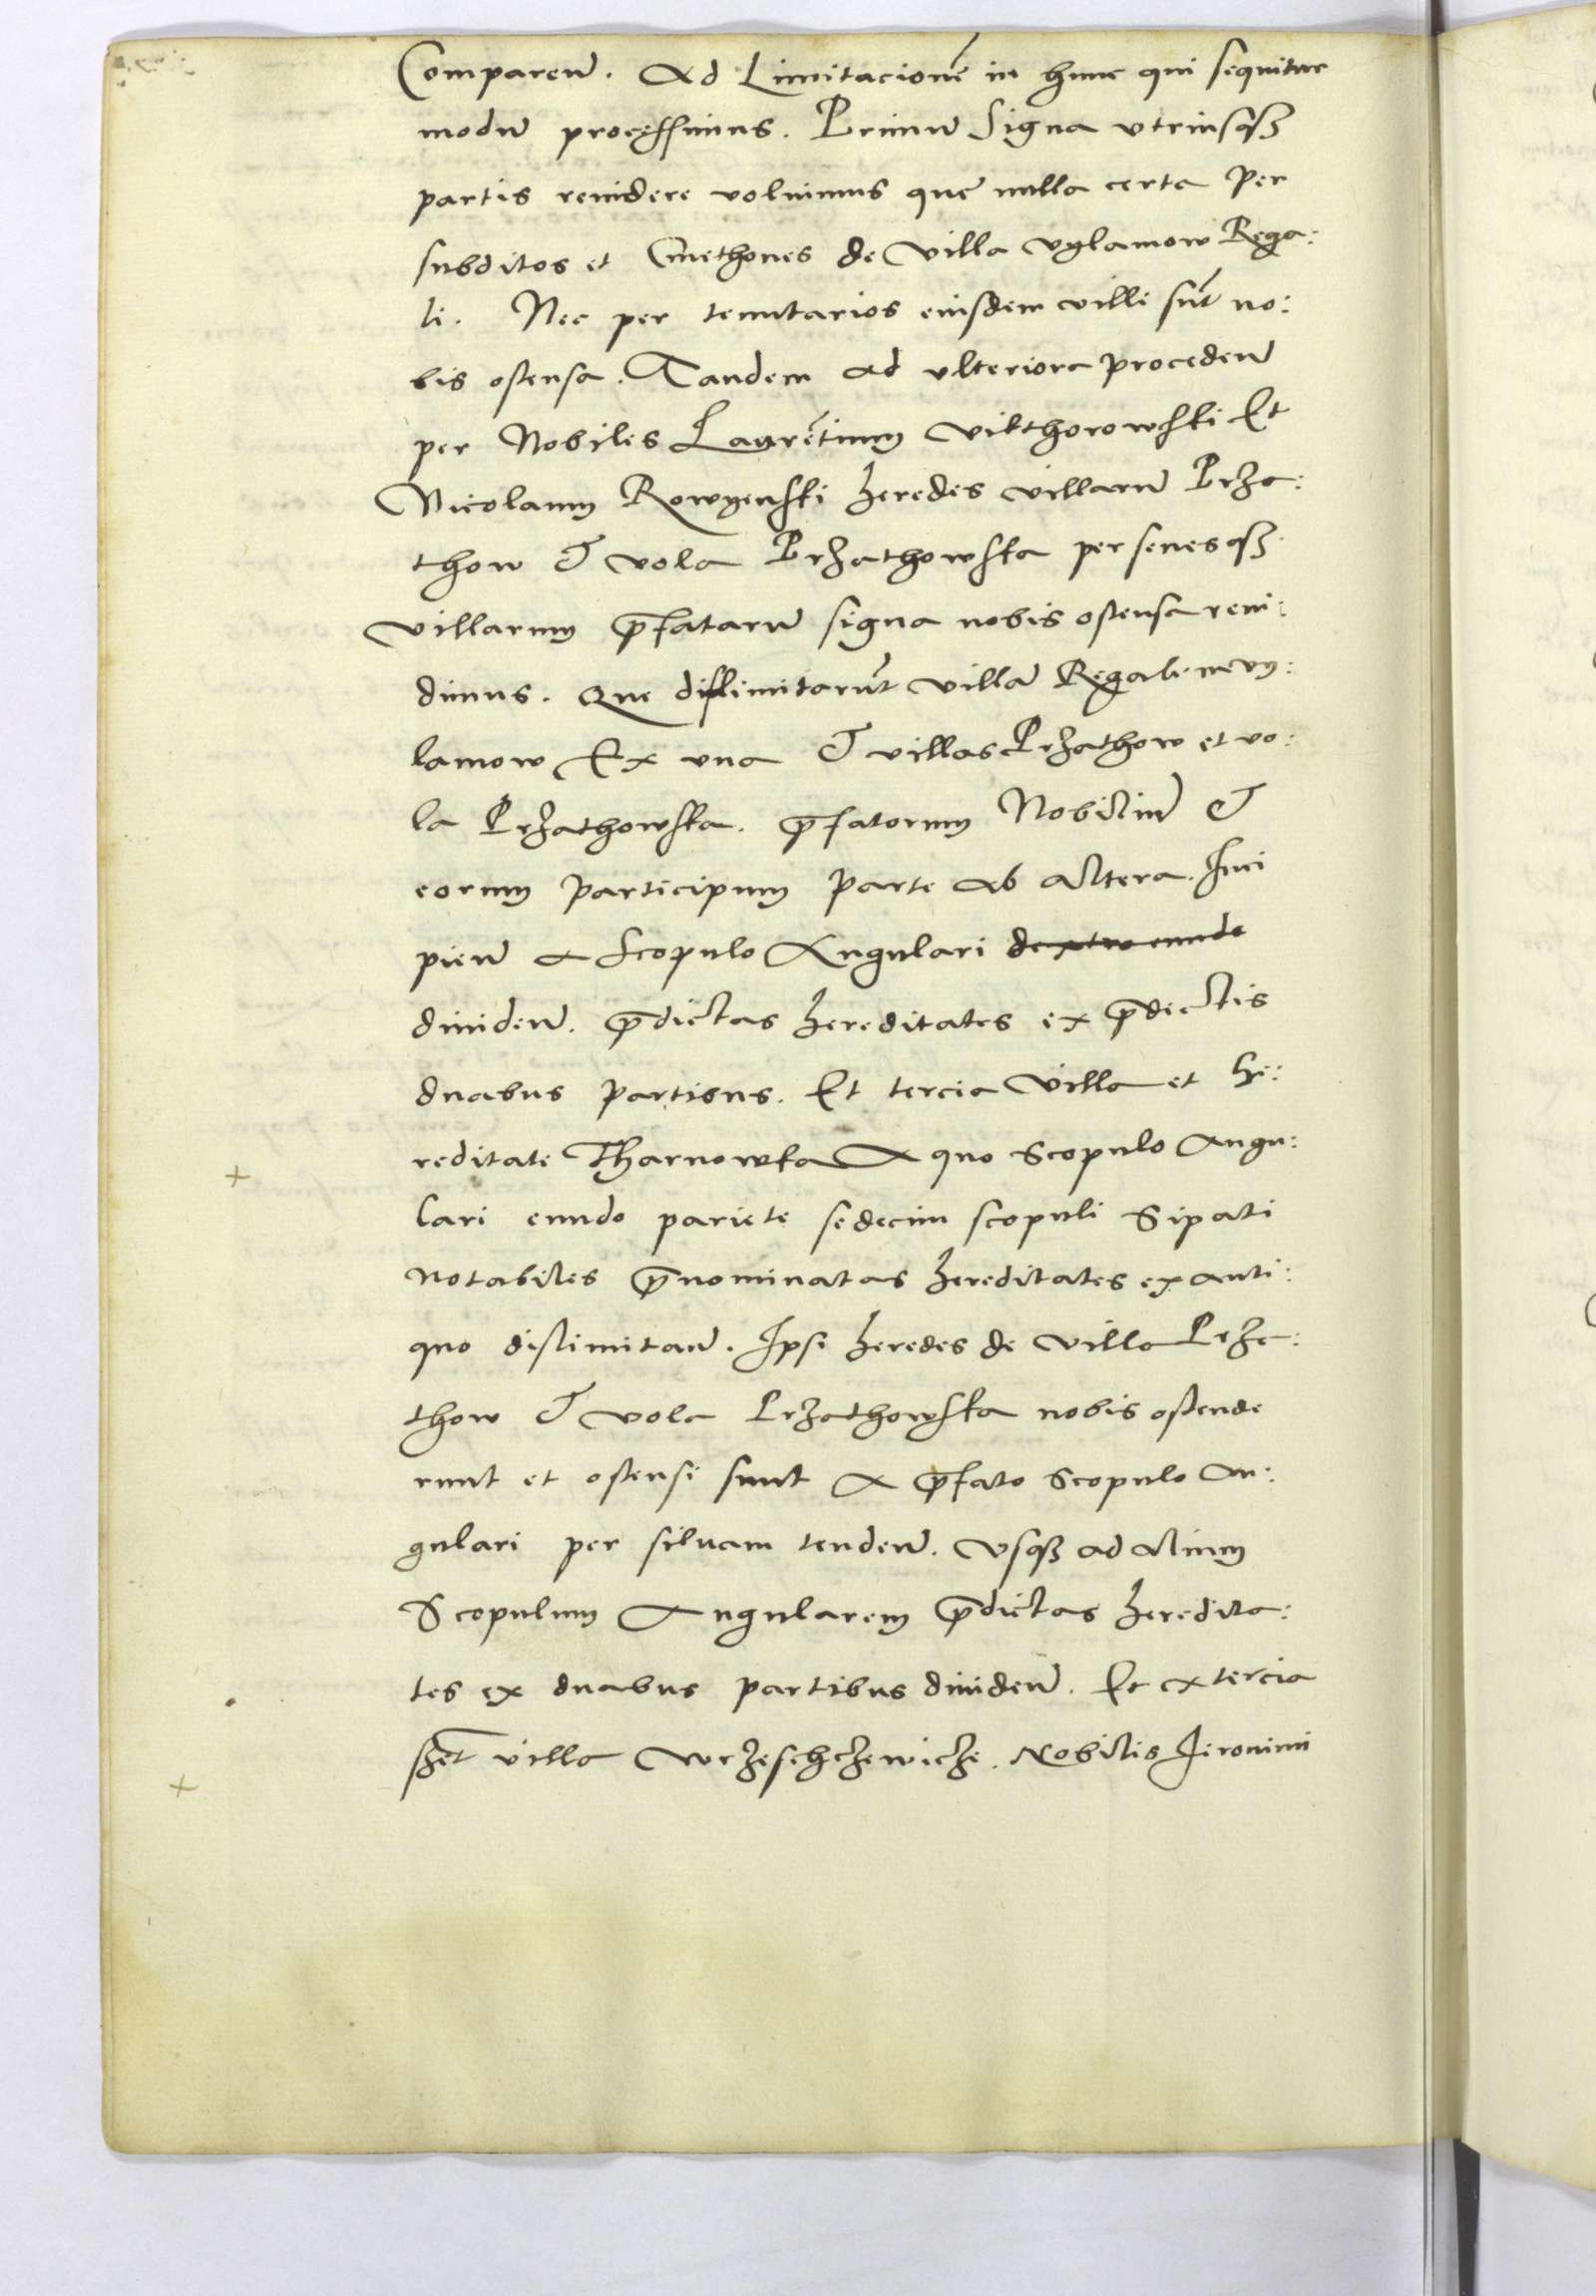 Comparen̄. Ad Limitacionē in hunc qui sequitur
modū processimus. Primū Signa utriusqȝ
partis reuidere voluimus que nulla certa per
subditos et Cmethones de villa vylamow Rega:
li. Nec per tenutarios eiusdem ville sūt no:
bis ostensa. Tandem ad vlteriora proceden̄
per Nobiles Laurētium vikthorowski Et
Nicolaum Rowyenski heredes villarū Prza:
thow & vola Przathowska per senesqȝ
villarum p̄fatarū signa nobis ostensa reui:
dimus. Que dislimitarūt villā Regalem vy:
lamow Ex vna & villas Przathow et vo:
la Przathowska. p̄fatorum Nobiliū &
eorum participum parte ab altera. Inci
pien̄ a Scopulo Angulari dextro eundo
diuiden̄. p̄dictas hereditates ex p̄dictis
duabus partibus. Et tercia villa et he:
reditate Tharnowka A quo scopulo angu:
lari eundo pariete sedecim scopuli Sipati
notabiles p̄nominatas hereditates ex anti:
quo dislimitan̄. Ipsi heredes de villa Prza:
thow & vola Przathowska nobis ostende
runt et ostensi sunt A p̄fato scopulo an:
gulari per siluam tenden̄. vsqȝ ad alium
Scopulum Angularem p̄dictas heredita:
tes ex duabus partibus diuiden̄. Et ex tercia
villa wrzeschczewicze. Nobilis Jeronimi